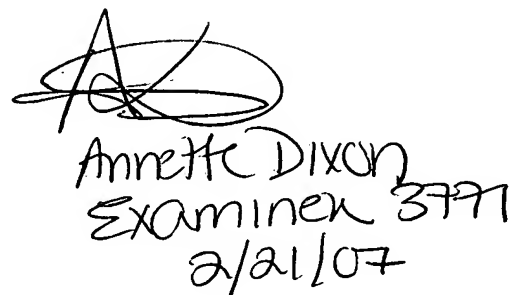 Annette Dixon
Examiner 3771
2/21/07